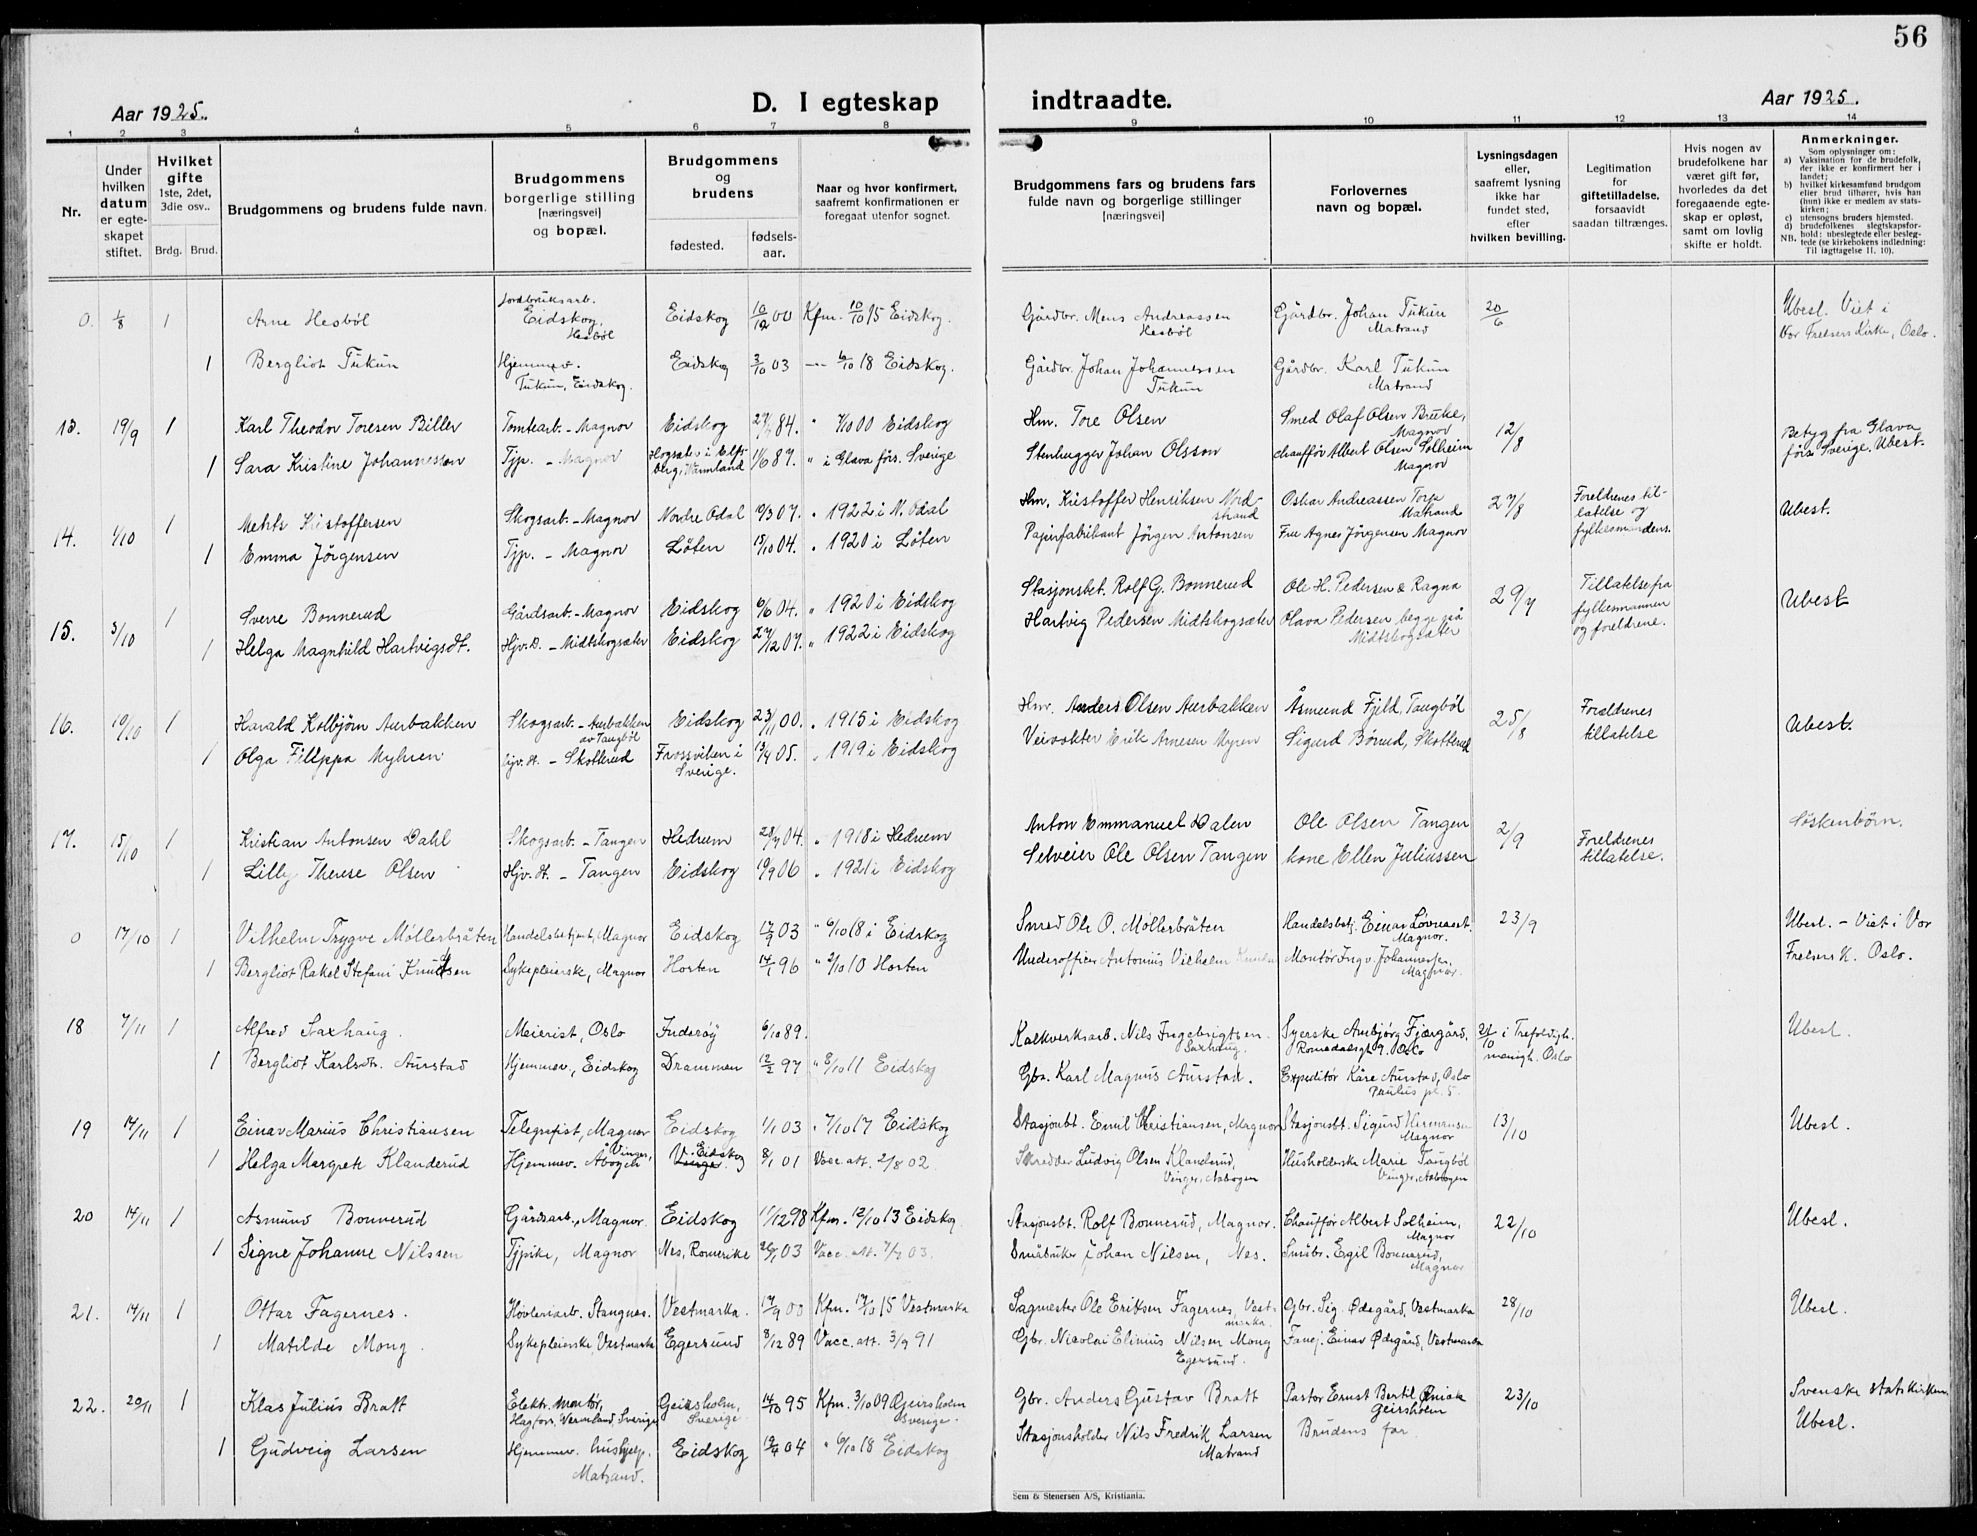 56
Aar 1925.
D. I egteskap
indtraadte.
Aar 1925.
1 2 3 4 5 6 7 8 9 10 11 12 13 14
Nr.
Under hvilken datum er egte-skapet stiftet.
Hvilket gifte
1ste, 2det, 3die osv..
Brdg. Brud.
Brudgommens og brudens fulde navn.
Brudgommens borgerlige stilling [næringsvei] og bopæl.
Brudgommens og brudens
fødested.
fødsels-aar.
Naar og hvor konfirmert, saafremt konfirmationen er foregaat utenfor sognet.
Brudgommens fars og brudens fars fulde navn og borgerlige stillinger [næringsvei]
Forlovernes navn og bopæl.
Lysningsdagen eller, saafremt lysning ikke har fundet sted, efter hvilken bevilling.
Legitimation for giftetilladelse, forsaavidt saadan tiltrænges.
Hvis nogen av brudefolkene har været gift før, hvorledes da det foregaaende egte-skap er opløst, samt om lovlig skifte er holdt.
Anmerkninger.
Som oplysninger om:
a) Vaksination for de brudefolk, der ikke er konfirmert her i landet;
b) hvilket kirkesamfund brudgom eller brud tilhører, hvis han (hun) ikke er medlem av stats-kirken;
c) utensogns bruders hjemsted.
d) brudefolkenes slegtskapsfor-hold: ubeslegtede eller besleg-tede (se kirkebokens indledning:
NB. Til iagttagelse II, 10).
0. 1/8 1 Arne Hesböl Jordbruksarb. Eidskog Hesböl Eidskog 10/12 00 Kfm. 10/10 15 Eidskog. Gårdbr. Mens Andreassen Hesböl Gårdbr. Johan Tukun Matrand 20/6 Ubesl. Viet i Vor Frelsers Kirke, Oslo.
1 Bergliot Tukun Hjemmev. Tukun, Eidskog. Eidskog 3/10 03 -"- 6/10 18 Eidskog. Gårdbr. Johan Johannessen Tukun Gårdbr. Karl Tukun Matrand
13. 19/9 1 Karl Theodor Toresen Biller Tomtearb. - Magnor Eidskog 84. " 7/10 00 Eidskog Hm. Tore Olsen Smed Olaf Olsen Bruke, Magnor 12/8 Betyg fra Glava förs. Sverige. Ubest.
1 Sara Kristine Johannesson Tjp. - Magnor 87. " i Glava förs. Sverige Stenhugger Johan Olsson chauffør Albert Olsen Solheim Magnor
14. 1/10 1 Kristoffersen Skogsarb. - Magnor Nordre Odal 07. " 1922 i N. Odal Hm. Kristoffer Henriksen Nord-strand Oskar Andreassen Torp Matrand 27/8 Foreldrenes til-latelse og fylkesmandens. Ubest.
1 Emma Jörgensen Tjp. - Magnor Löten 15/10 04. " 1920 i Löten Papirfabrikant Jörgen Antonsen Fru Agnes Jörgensen Magnor
15. 3/10 1 Sverre Bonnerud Gårdsarb. - Magnor Eidskog 6/6 04. " 1920 i Eidskog Stasjonsbet. Rolf G. Bonnerud Ole H. Pedersen & Ragna 29/7 Tillatelse fra fylkesmannen og foreldrene. Ubest
1 Helga Magnhild Hartvigsdt. Hjv. D. - Midtskogsæter Eidskog 27/12 07. " 1922 i Eidskog Hartvig Pedersen Midtskogsæter Olava Pedersen begge på Midtskogsæter
16. 10/10 1 Harald Kolbjörn Aurbakken Skogsarb. - Aurbakken av Tangböl Eidskog 23/11 00. " 1915 i Eidskog Hm. Anders Olsen Aurbakken Åsmund Fjeld, Tangböl 25/8 Forældrenes tillatelse Ubest.
1 Olga Fillppa Myhren Hjv. H. - Skotterud Frossviken i Sverige. 05. " 1919 i Eidskog Veivokter Erik Arnesen Myren Sigurd Börud, Skotterud
17. 15/10 1 Kristian Antonsen Dahl Skogsarb. - Tangen Hedrum 04. " 1918 i Hedrum Anton Emmanuel Dalen Ole Olsen Tangen 2/9 Foreldrenes tillatelse. Söskenbörn.
1 Lilly Therese Olsen Hjv. H. - Tangen Eidskog 06 " 1921 i Eidskog Selveier Ole Olsen Tangen kone Ellen Juliussen
0 17/10 1 Vilhelm Trygve Møllerbråten Handelsbetjent, Magnor Eidskog 17/9 03 " 6/10 18 i Eidskog Smed Ole O. Møllerbråten Handelsbetj. Einar Løvaaset. Magnor. 23/9 Ubesl. - Viet i Vor Frelsers K. Oslo.
1 Bergliot Rakel Stefani Knudsen Sykepleierske, Magnor Horten 96 " 2/10 10 Horten Underofficer Antonius Vilhelm Montør Ingv. Johannessen, Magnor.
18 7/11 1 Alfred Saxhaug. Meierist, Oslo Inderøy 6/10 89. Kalkverksarb. Nils Ingebrigtsen Saxhaug. Syerske Ambjörg Fjærgård, Romsdalsgt 9. Oslo i Trefoldigh. menigh. Oslo Ubesl.
1 Bergliot Karlsdtr. Aurstad Hjemmev., Eidskog Drammen 12/2 97 " 8/10 11 Eidskog Gbr. Karl Magnus Aurstad. Expeditör Kåre Aurstad, Oslo Paulus pl. 5.
19 14/11 1 Einar Marius Christiansen Telegrafist, Magnor Eidskog 1/1 03 " 7/10 17 Eidskog Stasjonsbt. Emil Kristiansen, Magnor Stasjonsbt. Sigurd Hermansen Magnor 13/10 Ubesl.
1 Helga Margrete Klanderud Hjemmev. Åbogen Vinger, V. Eidskog Vinger 8/1 01 Vacc. att. 2/8 02. Skredder Ludvig Olsen Klanderud, Vinger, Aabogen Husholderske Marie Tangböl Vinger, Aabogen
20 14/11 1 Asmund Bonnerud Gårdsarb., Magnor. Eidskog 11/12 98 Kfm. 12/10 13 Eidskog. Stasjonsbt. Rolf Bonnerud, Magnor. Chauffør Albert Solheim, Magnor 22/10 Ubesl.
1 Signe Johanne Nilssen Tjpike, Magnor Nes, Romerike 03 Vacc. att. 7/9 03. Småbruker Johan Nilsen, Nes. Småbr. Egil Bonnerud, Magnor
21. 14/11 1 Ottar Fagernes. Høvleriarb. Stangnes. Vestmarka. 17/9 00 Kfm. 17/10 15 Vestmarka Sagmester Ole Eriksen Fagernes, Vest-marka. Gbr. Sig. Ødegård, Vestmarka 28/10 Ubesl.
1 Matilde Mong. Sykepleierske, Vestmarka Egersund 8/12 89 Vacc. att. 3/9 91 Gbr. Nicolai Elinius Nilsen Mong Egersund. Einar Ødegård, Vestmarka
22. 20/11 1 Klas Julius Bratt Elektr. montør, Hagfors, Wermland, Sverige Geirsholm, Sverige 14/10 95 Kfm. 3/10 09 Geirsholm Sverige. Gbr. Anders Gustav Bratt Pastor Ernst Bertil Geirsholm 23/10 Svenske statskirken Ubesl.
1 Gudveig Larsen Hjemmev. hushjelp. Matrand. Eidskog 04 " 6/10 18 Eidskog Stasjonsholder Nils Fredrik Larsen Matrand Brudens far.
Sem & Stenersen A/S, Kristiania.